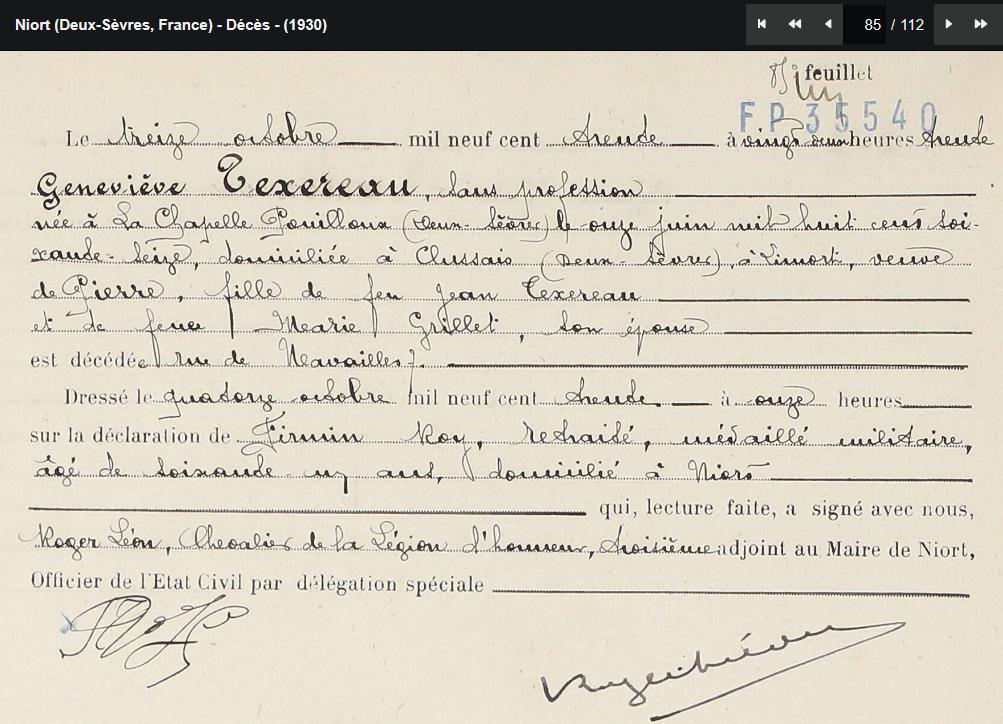 Niort (Deux-Sèvres, France) - Décès - (1930)
85 / 112
feuillet
F.P 35540
Le treize octobre mil neuf cent trente à vingt-deux heures trente
Geneviève Texereau, sans profession
née à La Chapelle Pouilloux (Deux-Sèvres) le onze juin mil huit cent soi-
xante-seize, domiciliée à Clussais (Deux-Sèvres), à Limort, veuve
de Pierre, fille de feu Jean Texereau
et de feue Marie Grillet, son épouse
est décédée rue de Navailles 7.
Dressé le quatorze octobre mil neuf cent trente à onze heures
sur la déclaration de Firmin Roy, retraité, médaillé militaire,
âgé de soixante-un ans, domicilié à Niort
qui, lecture faite, a signé avec nous,
Roger Léon, Chevalier de la Légion d'honneur, troisième adjoint au Maire de Niort,
Officier de l'Etat Civil par délégation spéciale